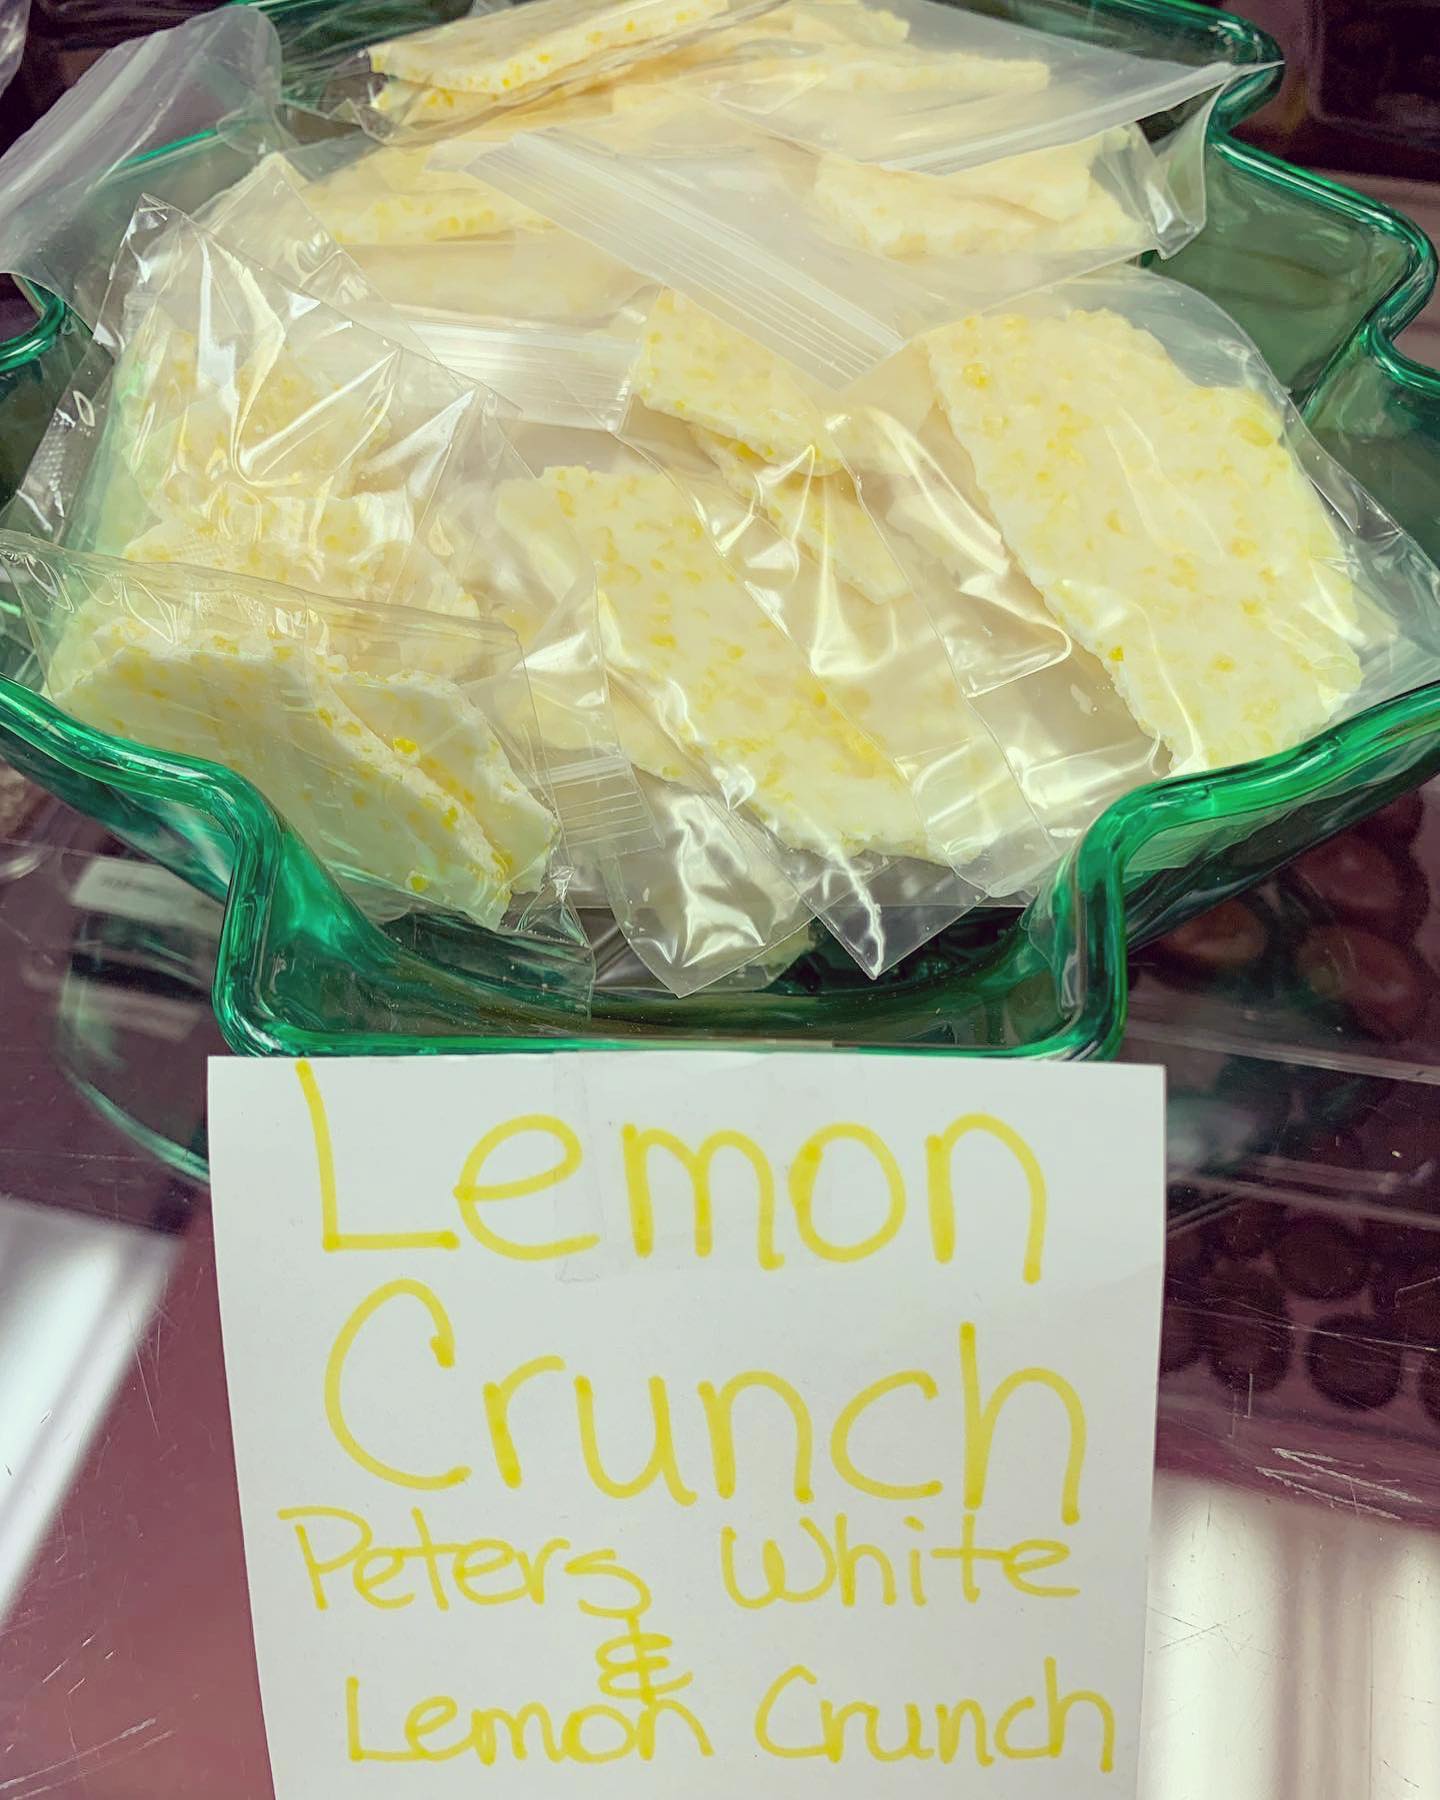 Lemon
Crunch
Peters White
&
Lemon Crunch